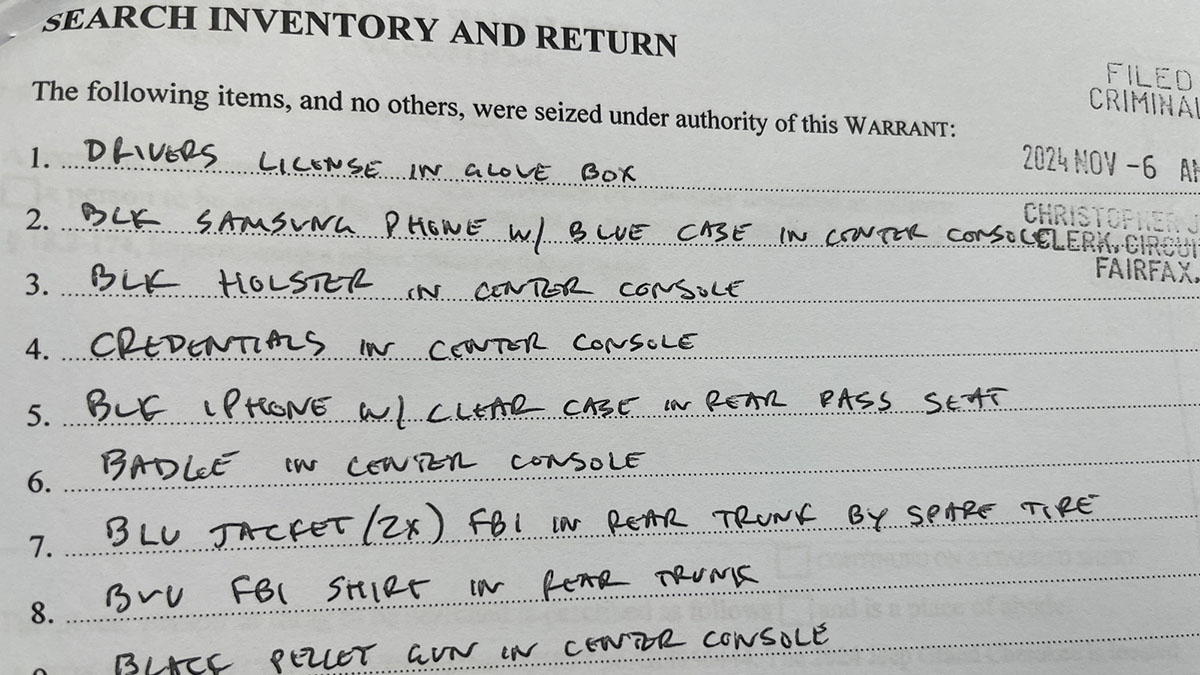 SEARCH INVENTORY AND RETURN
The following items, and no others, were seized under authority of this WARRANT:
FILED
CRIMINAL
2024 NOV -6 AM
CHRISTOPHER J
CLERK, CIRCUI
FAIRFAX,
1. DRIVERS LICENSE IN GLOVE BOX
2. BLK SAMSUNG PHONE W/ BLUE CASE IN CENTER CONSOLE
3. BLK HOLSTER IN CENTER CONSOLE
4. CREDENTIALS IN CENTER CONSOLE
5. BLK IPHONE W/ CLEAR CASE IN REAR PASS SEAT
6. BADGE IN CENTER CONSOLE
7. BLU JACKET (2X) FBI IN REAR TRUNK BY SPARE TIRE
8. BLU FBI SHIRT IN REAR TRUNK
BLACK PELLET GUN IN CENTER CONSOLE